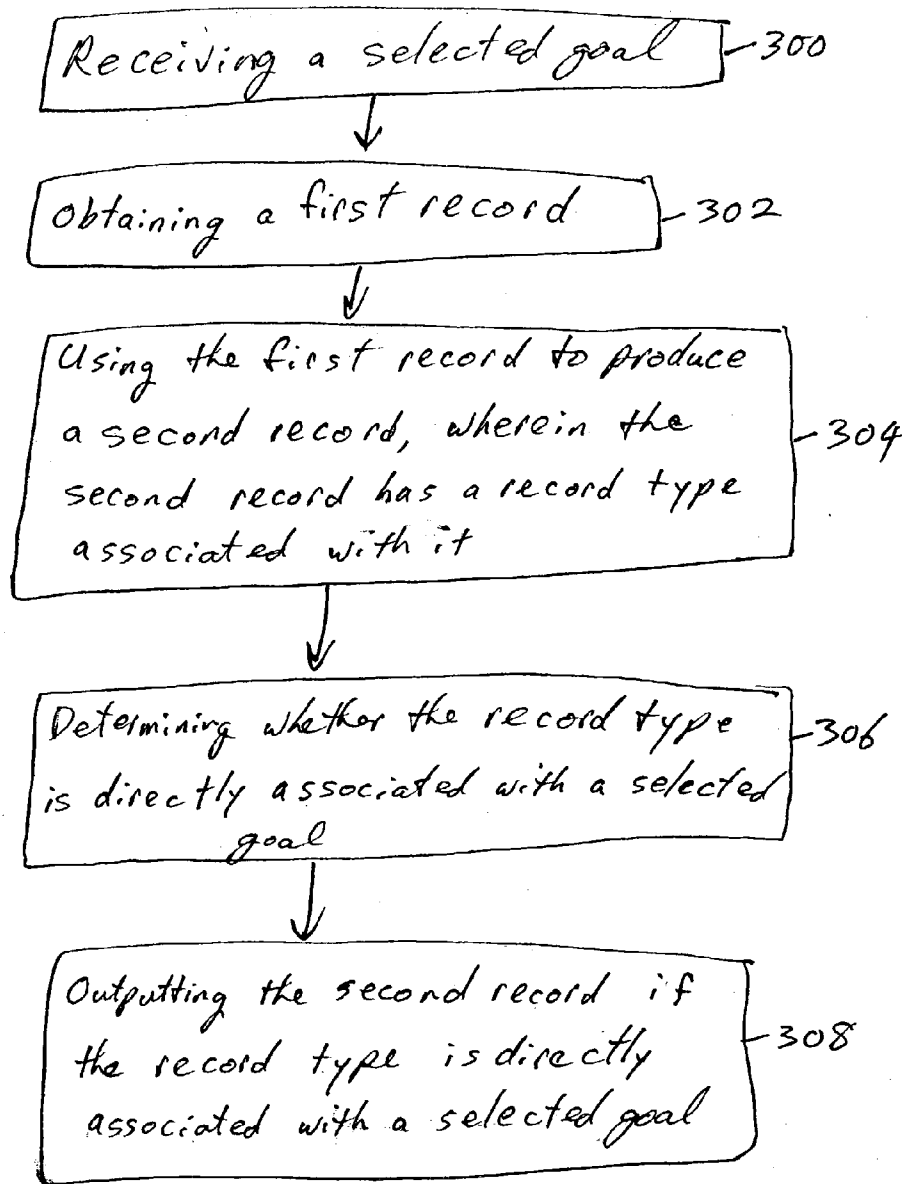 Receiving a selected goal
300
Obtaining a first record
302
Using the first record to produce
a second record, wherein the
second record has a record type
associated with it
304
Determining whether the record type
is directly associated with a selected
goal
306
Outputting the second record if
the record type is directly
associated with a selected goal
308